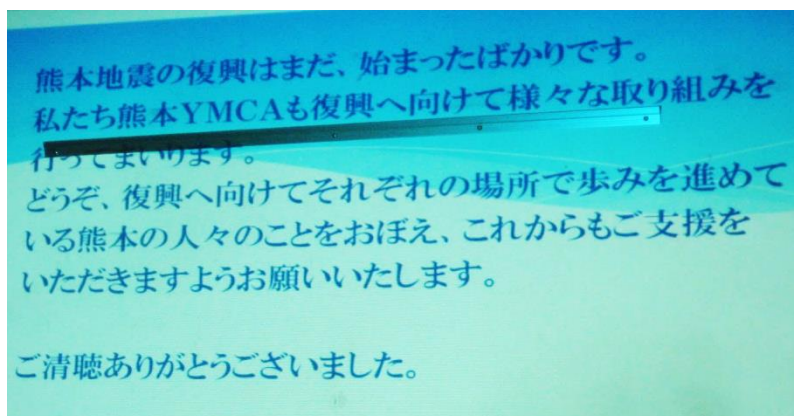 熊本地震の復興はまだ、始まったばかりです。
私たち熊本YMCAも復興へ向けて様々な取り組みを
行ってまいります。
どうぞ、復興へ向けてそれぞれの場所で歩みを進めて
いる熊本の人々のことをおぼえ、これからもご支援を
いただきますようお願いいたします。
ご清聴ありがとうございました。